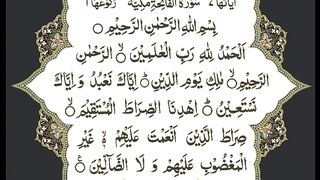 اٰیاتها ۷ سُوْرَةُ الْفَاتِحَةِ مَكِّیَّةٌ رُكُوْعُهَا ۱
بِسْمِ اللّٰهِ الرَّحْمٰنِ الرَّحِیْمِ ○
اَلْحَمْدُ لِلّٰهِ رَبِّ الْعٰلَمِیْنَ ○ الرَّحْمٰنِ
الرَّحِیْمِ ○ مٰلِكِ یَوْمِ الدِّیْنِ ○ اِیَّاكَ نَعْبُدُ وَ اِیَّاكَ
نَسْتَعِیْنُ ○ اِهْدِنَا الصِّرَاطَ الْمُسْتَقِیْمَ ○
صِرَاطَ الَّذِیْنَ اَنْعَمْتَ عَلَیْهِمْ ۙ۬ غَیْرِ
الْمَغْضُوْبِ عَلَیْهِمْ وَ لَا الضَّآلِّیْنَ ○